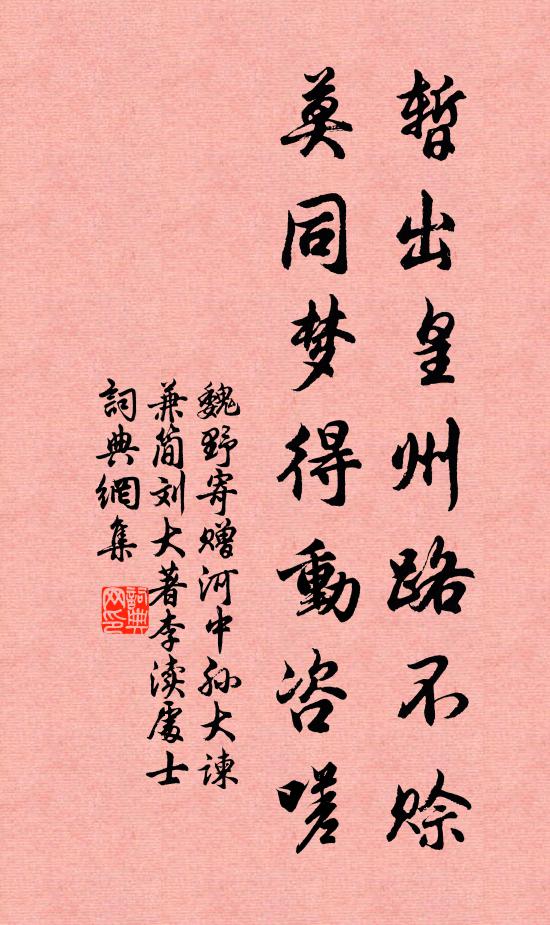 暫出皇州路不賒
莫同梦得動咨嗟
魏野寄赠河中孙大谏
兼简刘大著李渎處士
詞典網集
詞典网印